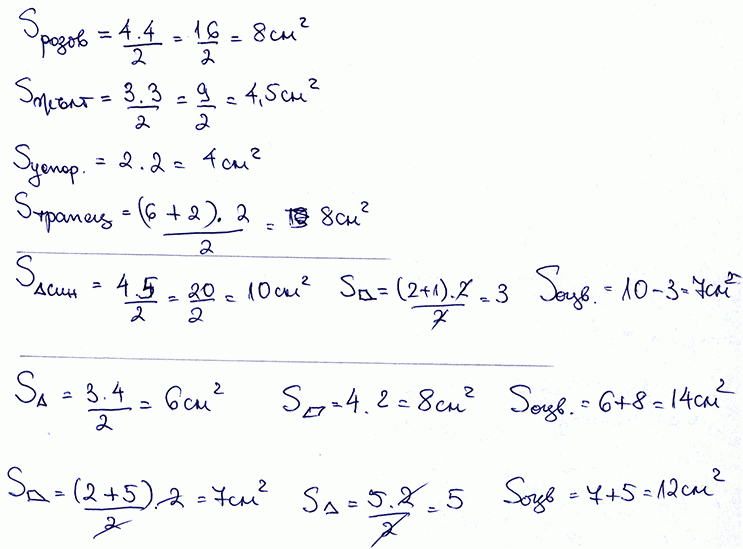 Sрозов = 4.4/2 = 16/2 = 8см²
Sжълт = 3.3/2 = 9/2 = 4,5см²
Sуспор. = 2.2 = 4см²
Sтрапец = (6+2).2/2 = 8см²
S△син = 4.5/2 = 20/2 = 10см² S⏢ = (2+1).2/2 = 3 Sоцв. = 10-3=7см²
S△ = 3.4/2 = 6см² S▱ = 4.2 = 8см² Sоцв. = 6+8 = 14см²
S⏢ = (2+5).2/2 = 7см² S△ = 5.2/2 = 5 Sоцв = 7+5 = 12см²